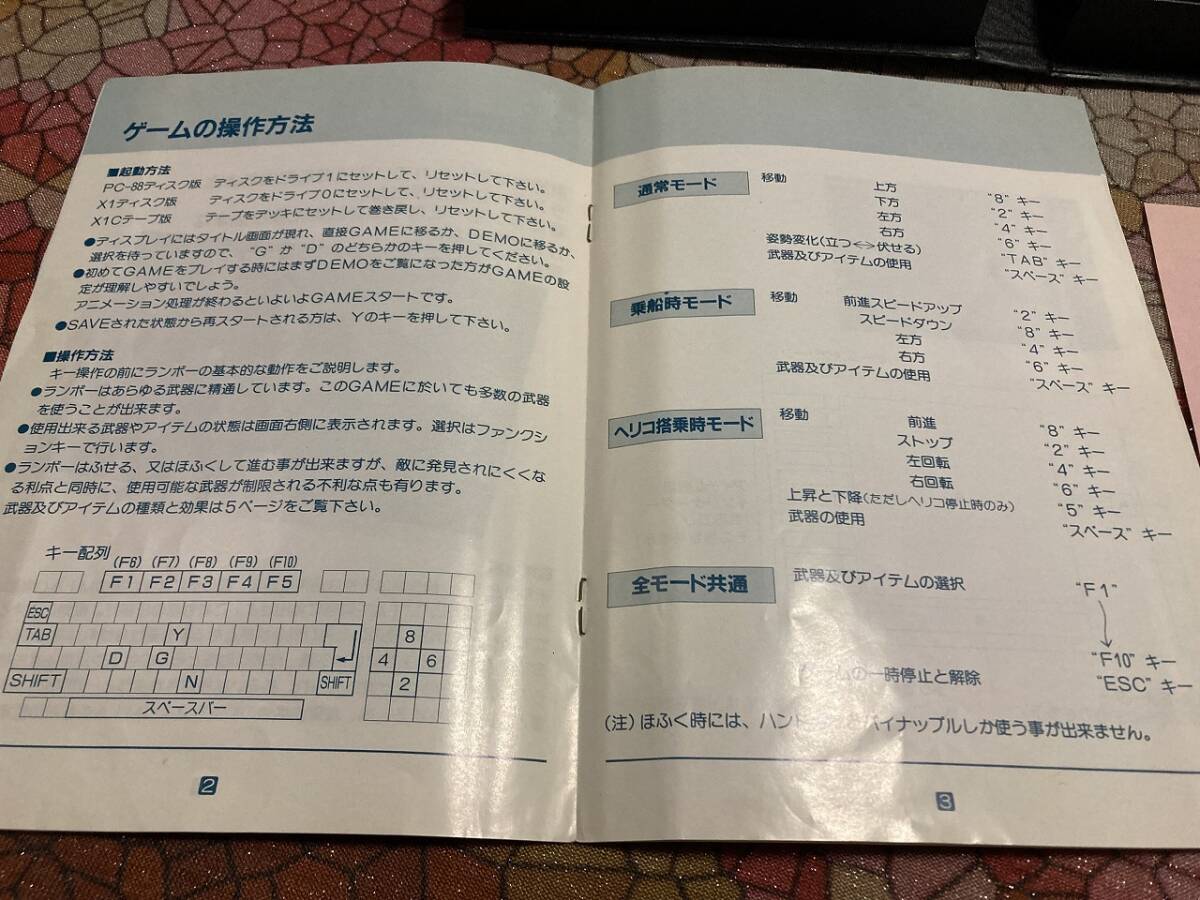 ゲームの操作方法
■起動方法
PC-88ディスク版 ディスクをドライブ1にセットして、リセットして下さい。
X1ディスク版 ディスクをドライブ0にセットして、リセットして下さい。
X1Cテープ版 テープをデッキにセットして巻き戻し、リセットして下さい。
●ディスプレイにはタイトル画面が現れ、直接GAMEに移るか、DEMOに移るか、
選択を待っていますので、“G”か“D”のどちらかのキーを押してください。
●初めてGAMEをプレイする時にはまずDEMOをご覧になった方がGAMEの設
定が理解しやすいでしょう。
アニメーション処理が終わるといよいよGAMEスタートです。
●SAVEされた状態から再スタートされる方は、Yのキーを押して下さい。
■操作方法
キー操作の前にランボーの基本的な動作をご説明します。
●ランボーはあらゆる武器に精通しています。このGAMEに於いても多数の武器
を使うことが出来ます。
●使用出来る武器やアイテムの状態は画面右側に表示されます。選択はファンクシ
ョンキーで行います。
●ランボーはふせる、又はほふくして進む事が出来ますが、敵に発見されにくくな
る利点と同時に、使用可能な武器が制限される不利な点も有ります。
武器及びアイテムの種類と効果は5ページをご覧下さい。
キー配列
(F6) (F7) (F8) (F9) (F10)
F1 F2 F3 F4 F5
ESC
TAB Y
D G
SHIFT N SHIFT
スペースバー
8
4 6
2
2
通常モード 移動 上方 “8” キー
下方 “2” キー
左方 “4” キー
右方 “6” キー
姿勢変化(立つ⟷伏せる) “TAB” キー
武器及びアイテムの使用 “スペース” キー
乗船時モード 移動 前進スピードアップ “2” キー
スピードダウン “8” キー
左方 “4” キー
右方 “6” キー
武器及びアイテムの使用 “スペース” キー
ヘリコ搭乗時モード 移動 前進 “8” キー
ストップ “2” キー
左回転 “4” キー
右回転 “6” キー
上昇と下降(ただしヘリコ停止時のみ) “5” キー
武器の使用 “スペース” キー
全モード共通 武器及びアイテムの選択 “F1”
↓
“F10” キー
ムの一時停止と解除 “ESC” キー
(注)ほふく時には、ハン パイナップルしか使う事が出来ません。
3